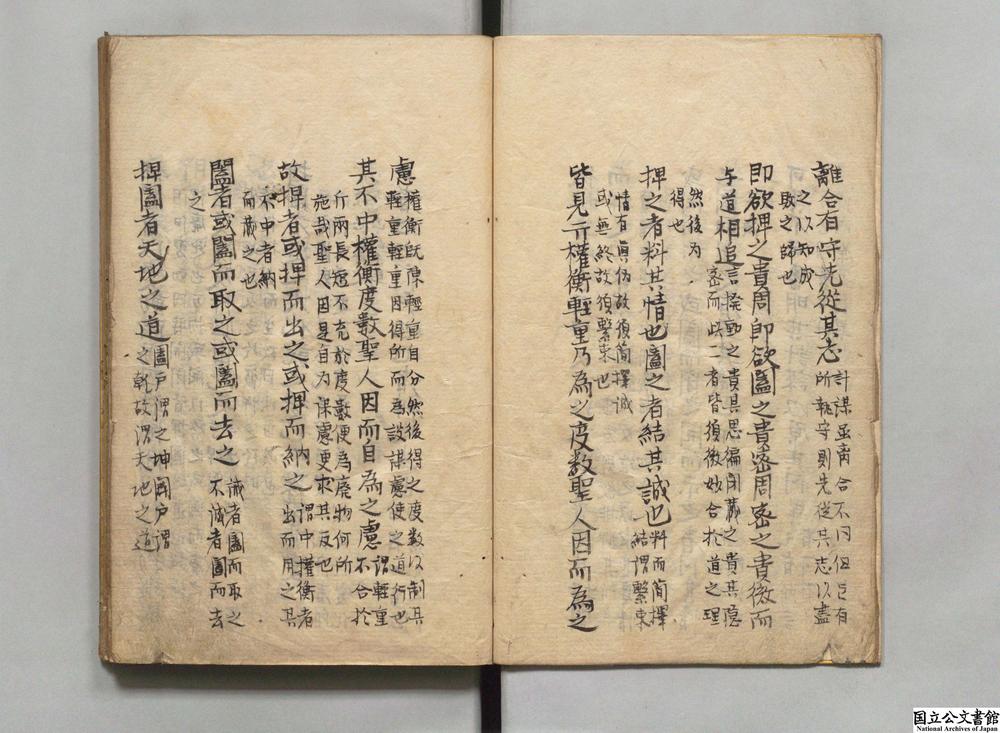 離合有守先從其志計謀虽离合不同但已有
之以知成所執守則先從其志以盡
敗之歸也
即欲捭之貴周即欲闔之貴密周密之貴微而
与道相追言撥動之貴其思徧閉藏之貴其隱
密而此二者皆須微妙合於道之理
然後为
得也
捭之者料其情也闔之者結其誠也料而簡擇
結謂繫束
情有真伪故須簡擇誠
或無終故須繫束也
皆見其權衡輕重乃為之度数聖人因而為之
慮權衡既陳輕重自分然後得之度数以制其
輕重輕重因得所而為設謀慮使之道行也
其不中權衡度數聖人因而自為之慮謂輕重
不合於
斤兩長短不充於度數便為廃物何所
施哉聖人因是自为謀慮更求其反也
故捭者或捭而出之或捭而納之謂中權衡者
出而用之其
不中者納
而藏之也
闔者或闔而取之或闔而去之誠者闔而取之
不誠者闔而去
之
捭闔者天地之道闔户謂之坤闢户謂
之乾故謂天地之道
国立公文書館
National Archives of Japan